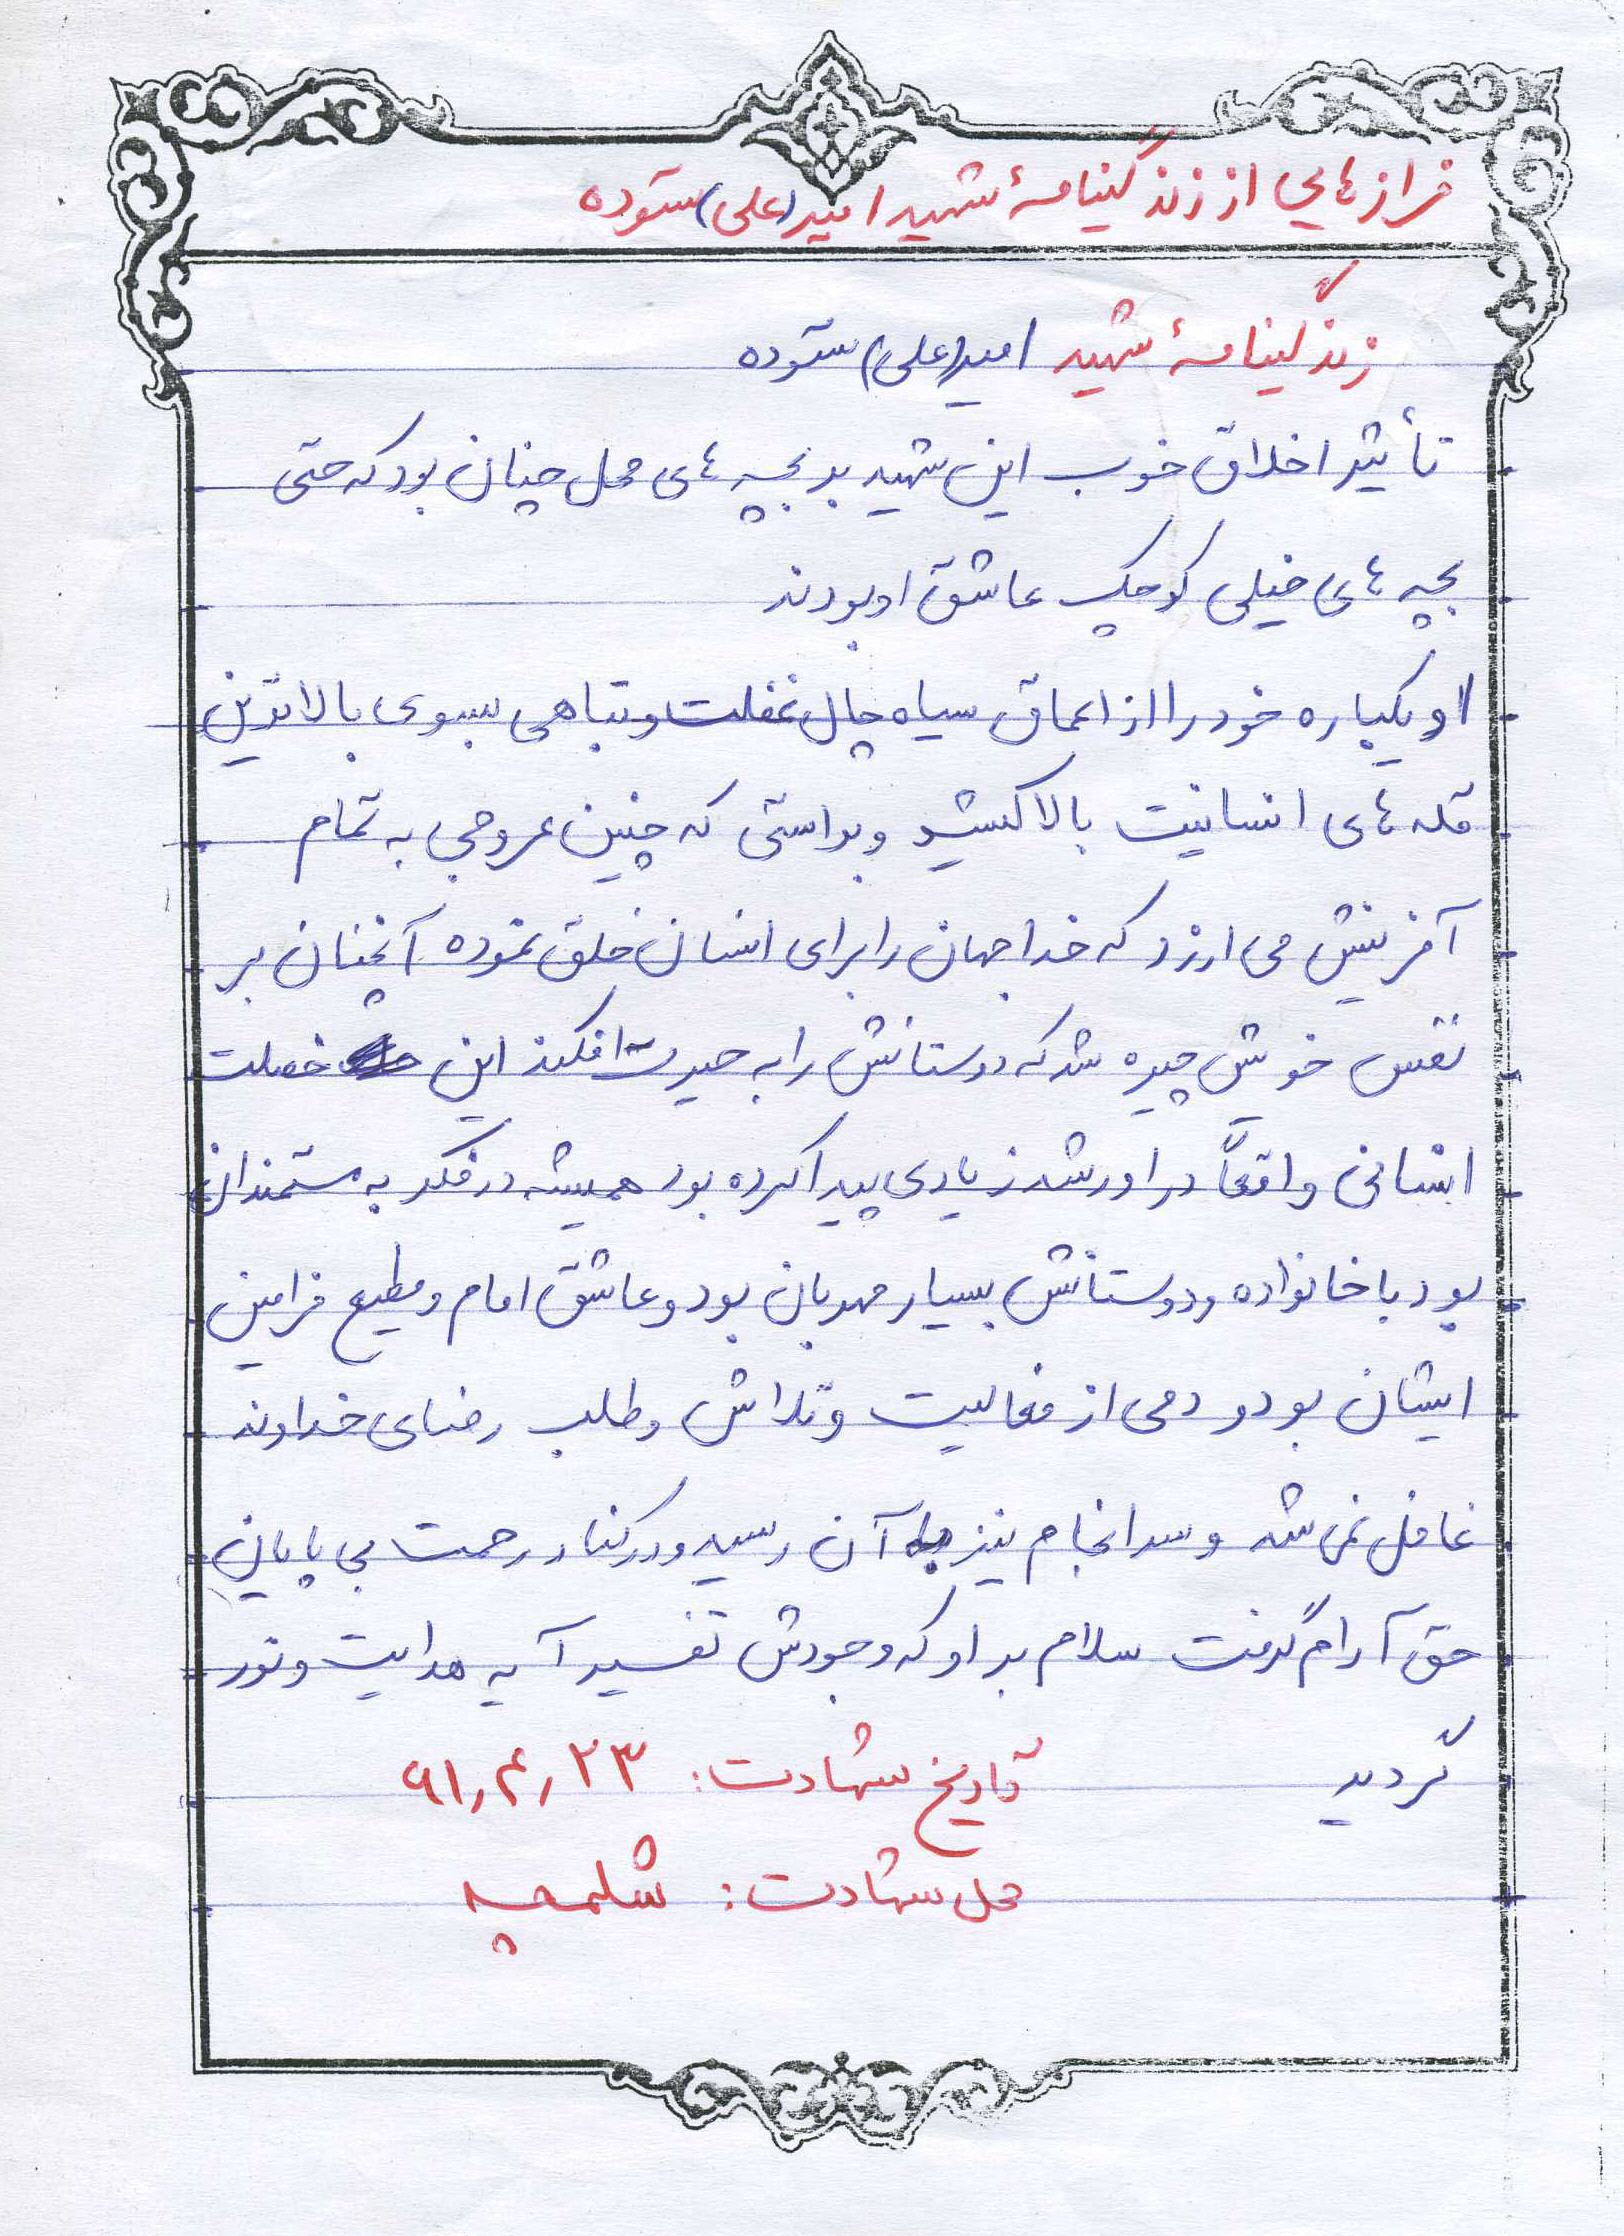 فرازهایی از زندگینامهٔ شهید امیر(علی) ستوده
زندگینامهٔ شهید امیر(علی) ستوده
تأثیر اخلاق خوب این شهید بر بچه های محل چنان بود که حتی
بچه های خیلی کوچک عاشق او بودند
او یکباره خود را از اعماق سیاه چال غفلت و تباهی بسوی بالاترین
قله های انسانیت بالا کشید و براستی که چنین عروجی به تمام
آفرینش می ارزد که خدا جهان را برای انسان خلق نموده آنچنان بر
نفس خویش چیره شد که دوستانش را به حیرت افکند این خصلت
انسانی واقعاً در او رشد زیادی پیدا کرده بود همیشه در فکر به مستمندان
بود با خانواده و دوستانش بسیار مهربان بود و عاشق امام و مطیع فرامین
ایشان بود و دمی از فعالیت و تلاش و طلب رضای خداوند
غافل نمی شد و سرانجام نیز به آن رسید و در کنار رحمت بی پایان
حق آرام گرفت سلام بر او که وجودش تفسیر آیه هدایت و نور
گردید
تاریخ شهادت: ۶۱٫۴٫۲۳
محل شهادت: شلمچه